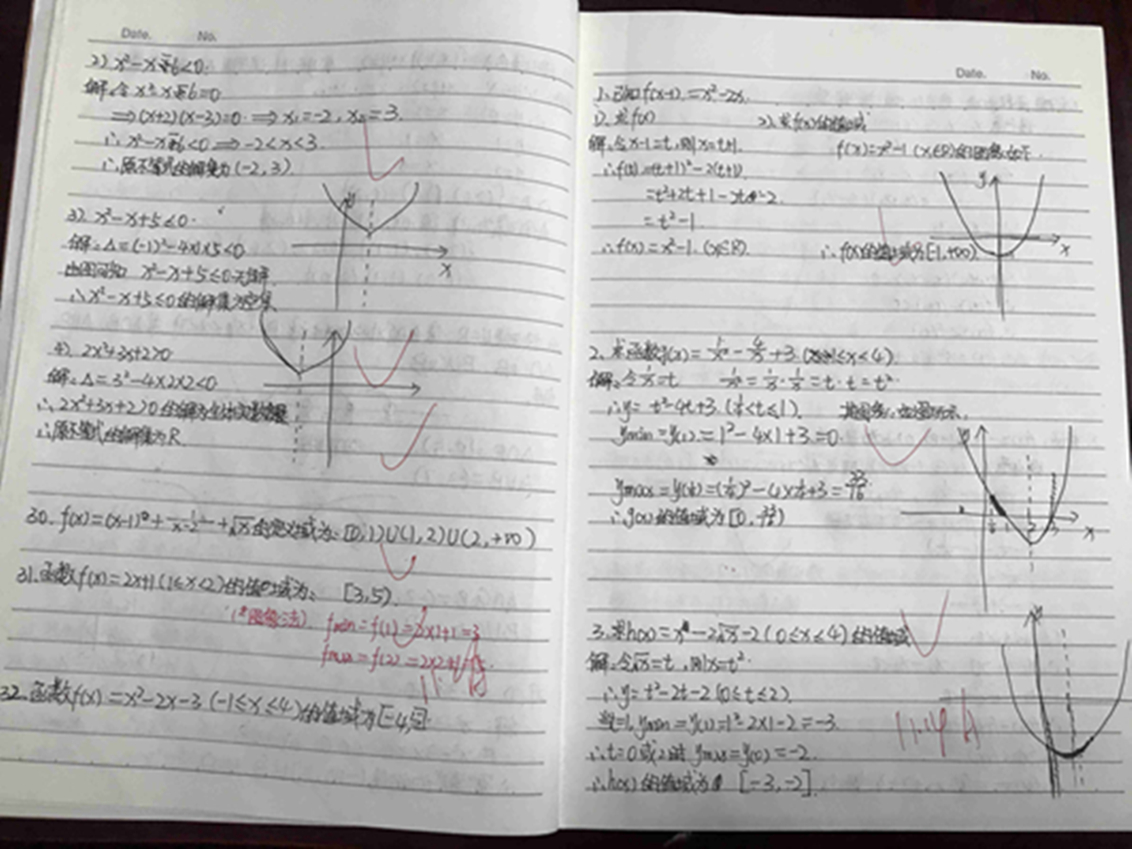 Date. No.
2) x²-x-6<0.
解:令x²-x-6=0
⇒(x+2)(x-3)=0 ⇒ x₁=-2, x₂=3.
∴x²-x-6<0 ⇒ -2<x<3.
∴原不等式的解集为(-2,3).
3). x²-x+5≤0.
解:Δ=(-1)²-4×1×5<0
由图可知 x²-x+5≤0无解.
∴x²-x+5≤0的解集为空集.
x
4). 2x²+3x+2>0
解:Δ=3²-4×2×2<0
∴2x²+3x+2>0的解为全体实数
∴原不等式的解集为R.
30. f(x)=(x-1)⁰+1/(x-2)+√x的定义域为:[0,1)∪(1,2)∪(2,+∞)
31.函数f(x)=2x+1(1≤x<2)的值域为: [3,5).
(图像法) fmin=f(1)=2×1+1=3
fmax=f(2)=2×2+1=5.
32.函数f(x)=x²-2x-3 (-1≤x≤4)的值域为[-4,5].
Date. No.
1.已知f(x-1)=x²-2x.
1).求f(x) 2).求f(x)的值域
解:令x-1=t,则x=t+1. f(x)=x²-1 (x∈R)的图象如下.
∴f(t)=(t+1)²-2(t+1) y
=t²+2t+1-2t-2
=t²-1.
∴f(x)=x²-1.(x∈R). ∴f(x)的值域为[-1,+∞) x
2.求函数g(x)=1/x²-4/x+3 (1≤x≤4)
解:令1/x=t 1/x²=1/x·1/x=t·t=t²
∴y=t²-4t+3.(1/4≤t≤1). 其图象如图所示.
ymin=y(1)=1²-4×1+3=0. y
ymax=y(1/4)=(1/4)²-4×1/4+3=33/16
∴g(x)的值域为[0,33/16] 1 2 3 x
3.求h(x)=x-2√x-2(0≤x≤4)的值域 y
解:令√x=t,则x=t²
∴y=t²-2t-2(0≤t≤2)
当t=1,ymin=y(1)=1²-2×1-2=-3. 11.14
∴t=0或2时 ymax=y(0)=-2.
∴h(x)的值域为 [-3,-2].